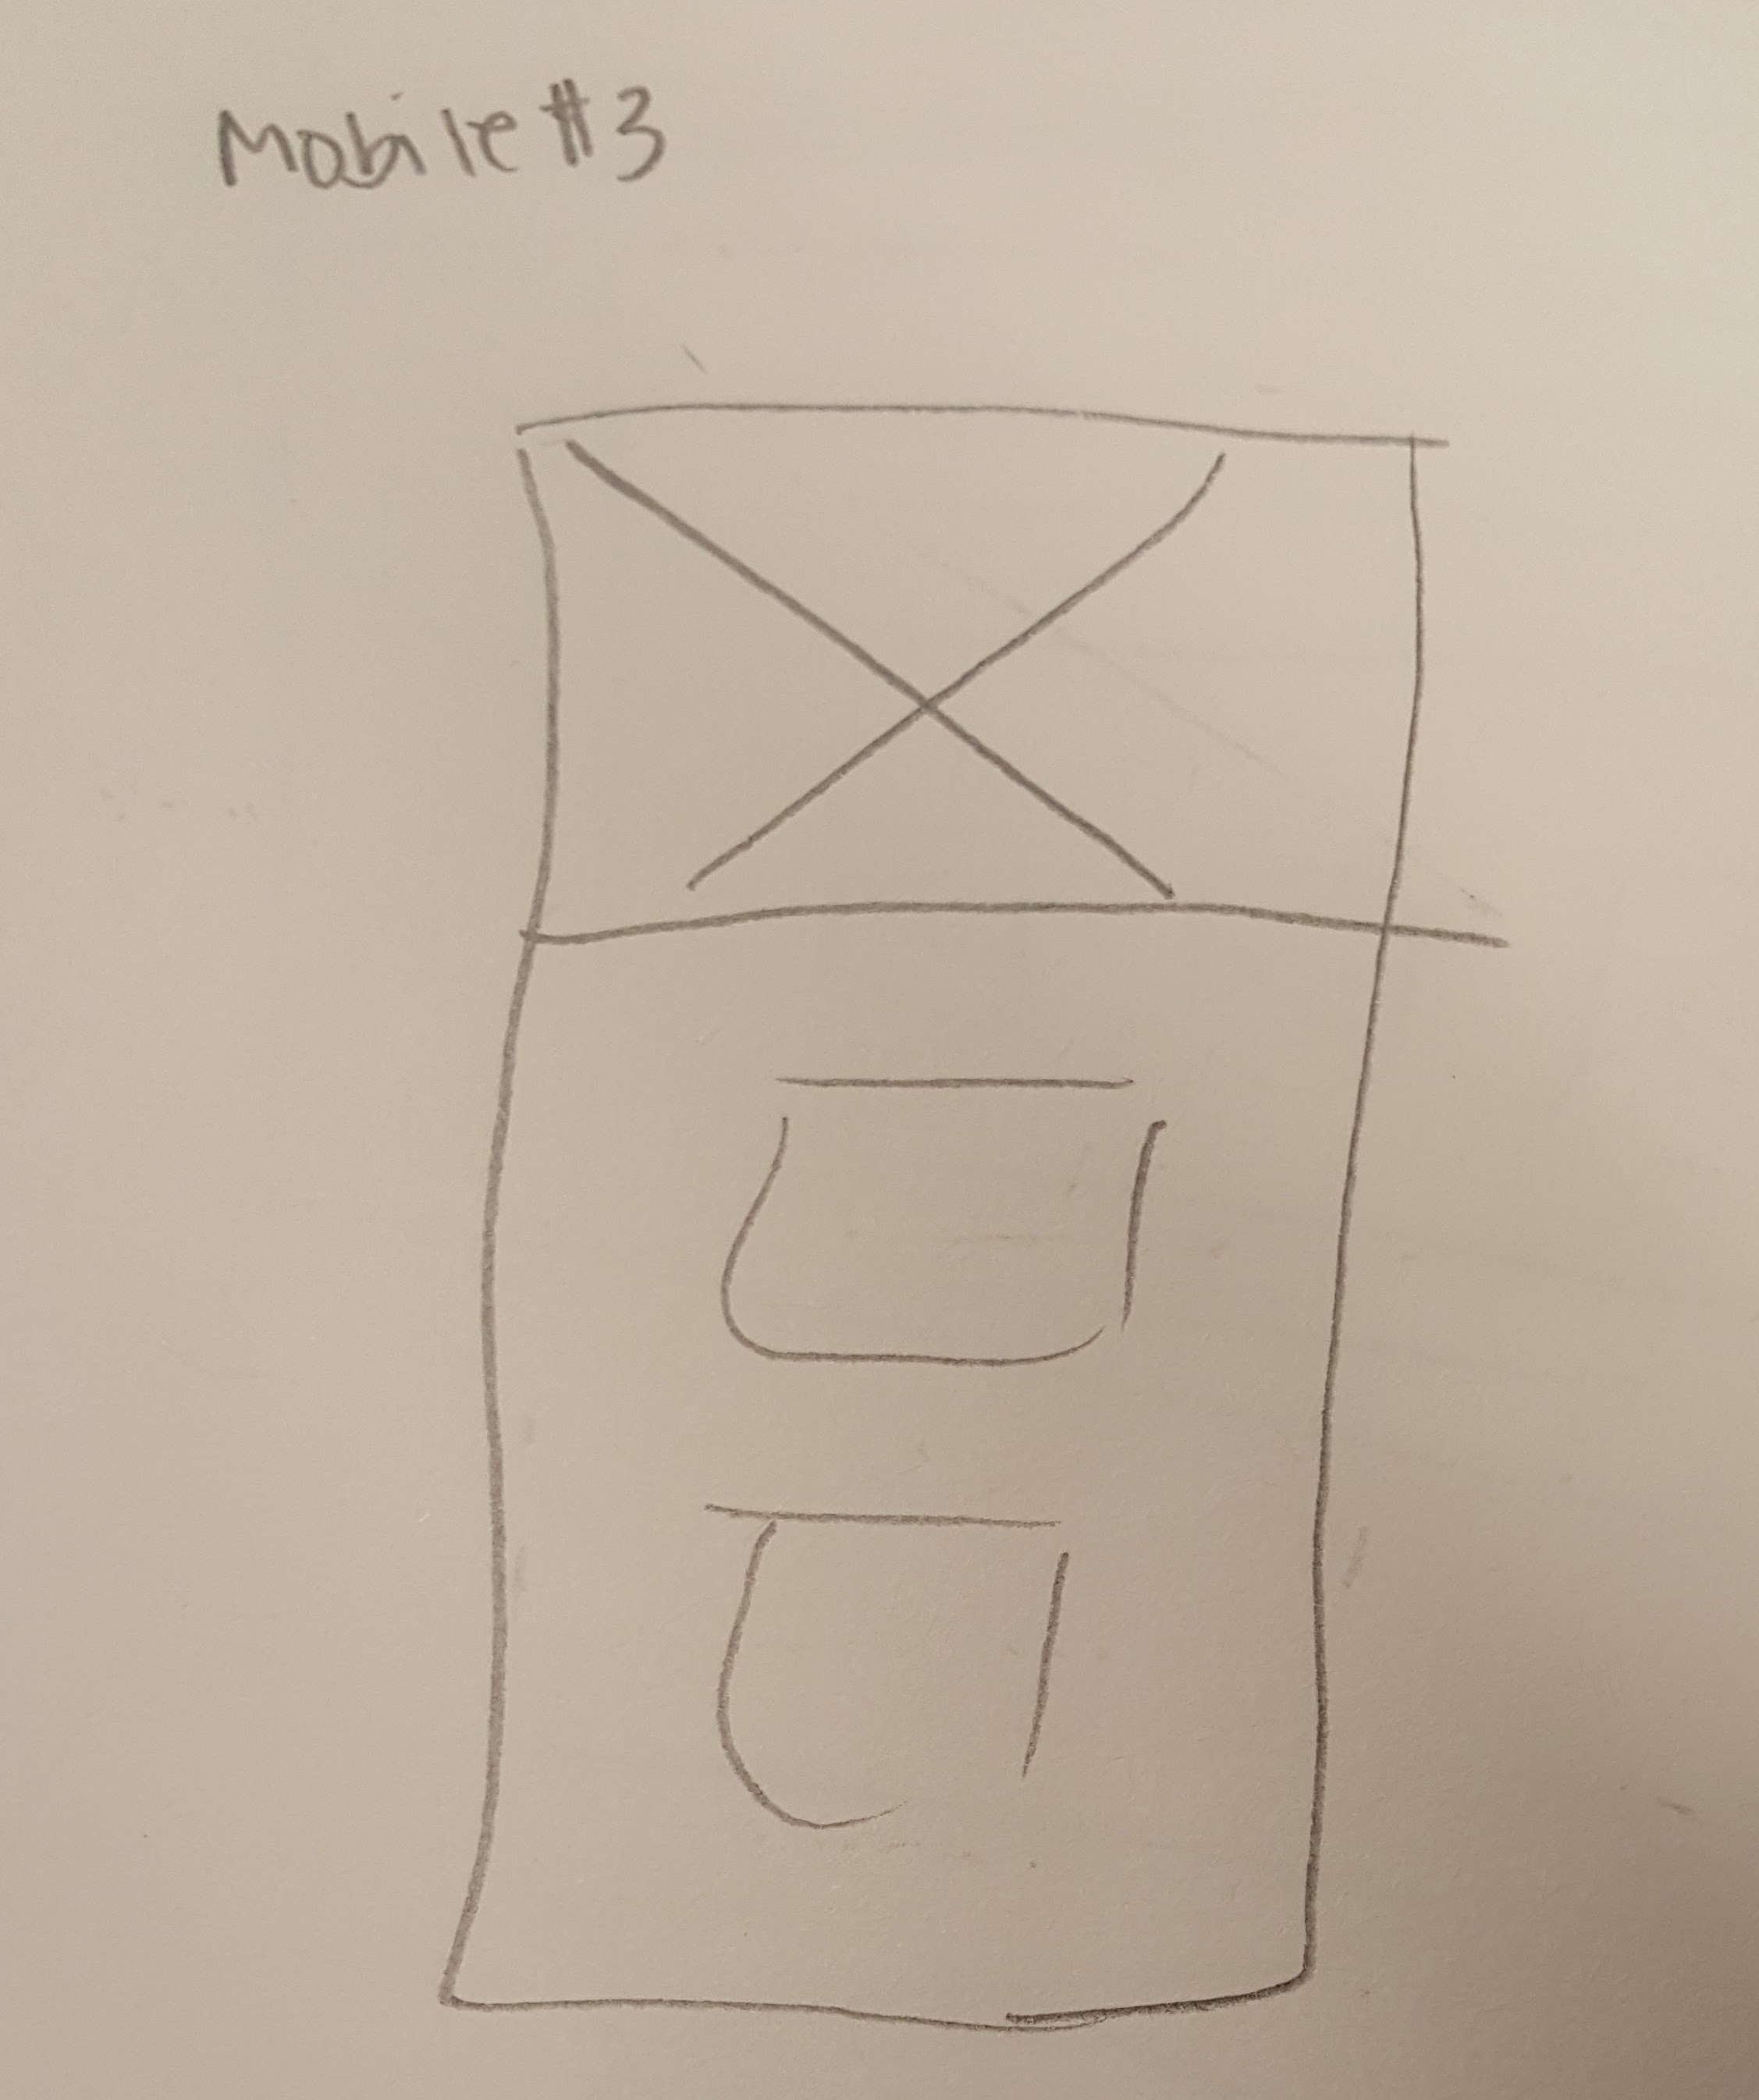 Mobile #3